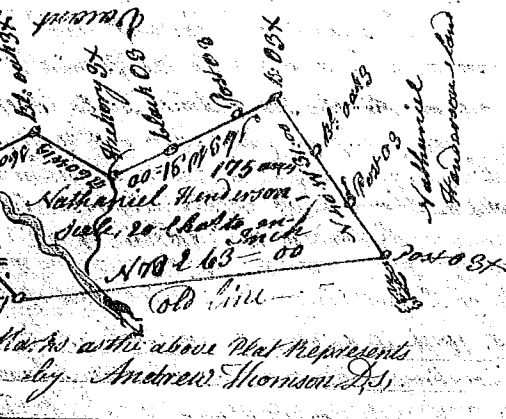 Vacant
Bl. oak 3x
Hickory 3x
black O3
Post O3
B: O3x
Bl: oak 3
Post O3
Nathaniel
Henderson land
175 acres
Nathaniel Henderson
Scale, 20 Chs to an
Inch
N 78 E 63 = 00
Old line
Post O3x
Marks as the above Plat Represents
by Andrew Thomson D,S,